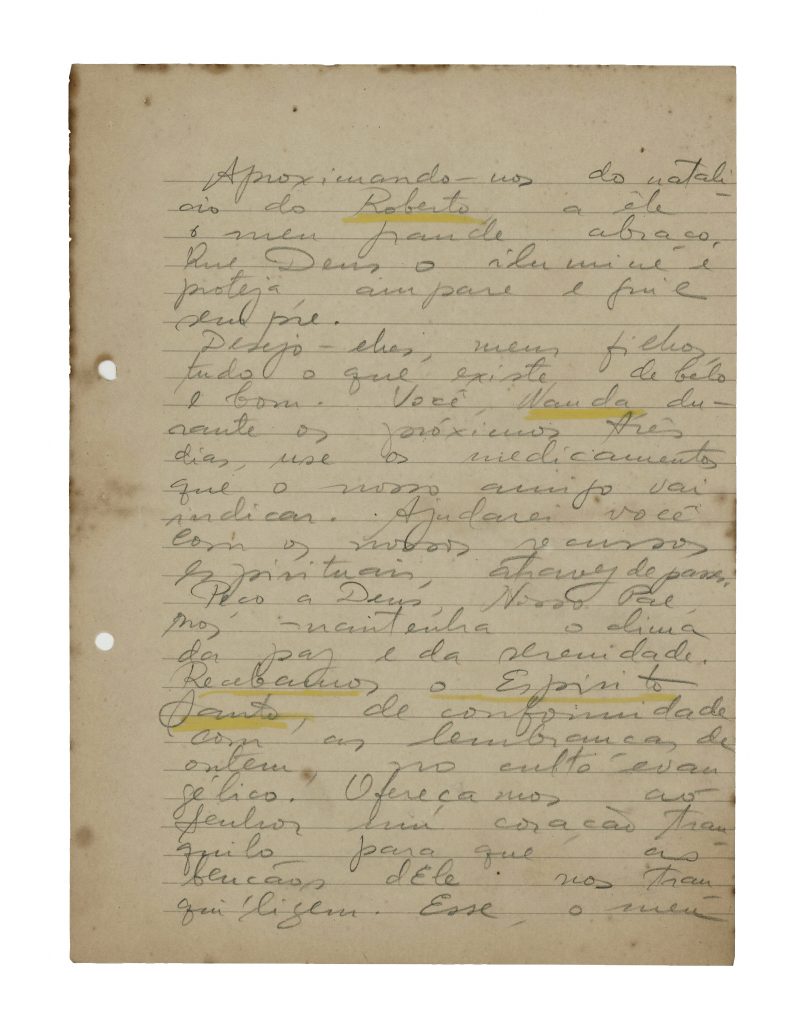 Aproximando-nos do natalí-
cio do Roberto, a êle
o meu grande abraço.
Que Deus o ilumine e
proteja ampare e guie
sempre.
Desejo-lhes, meus filhos,
tudo o que existe de belo
e bom. Você, Wanda du-
rante os próximos três
dias, use os medicamentos
que o nosso amigo vai
indicar. Ajudarei você
com os nossos recursos
espirituais, através de passes.
Peço a Deus, Nosso Pai,
nos mantenha o clima
da paz e da serenidade.
Recebamos o Espírito
Santo, de conformidade
com as lembranças de
ontem, no culto evan
gélico. Ofereçamos ao
Senhor um coração tran-
quilo para que as
bençãos dEle nos tran
quiligem. Esse, o meu